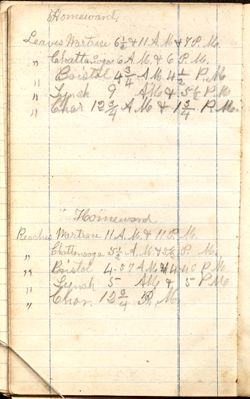 Homeward,
Leaves Wartrace 6½ & 11 A M & 7 P. M.
" Chattanooga 6 A M. & 6 P. M.
" Bristol 4¾ A M 4½ P. M.
" Lynch 9 AM & 5½ P. M
" Char 12¾ A M & 1¾ P. M.
" Homeward
Reaches Wartrace 11 A. M. & 11 P. M.
" Chattanooga 5½ A. M & 5½ P. M.
" Bristol 4.07 A M. & 4.40 P. M
" Lynch 5 AM & 5 P M
" Char. 12¾ P. M